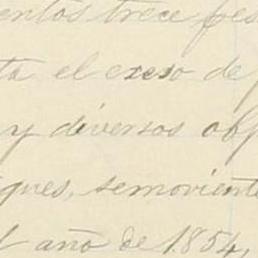 entos trece pes
ta el exeso de p
y diversos obj
gues, semoviente
l año de 1854,